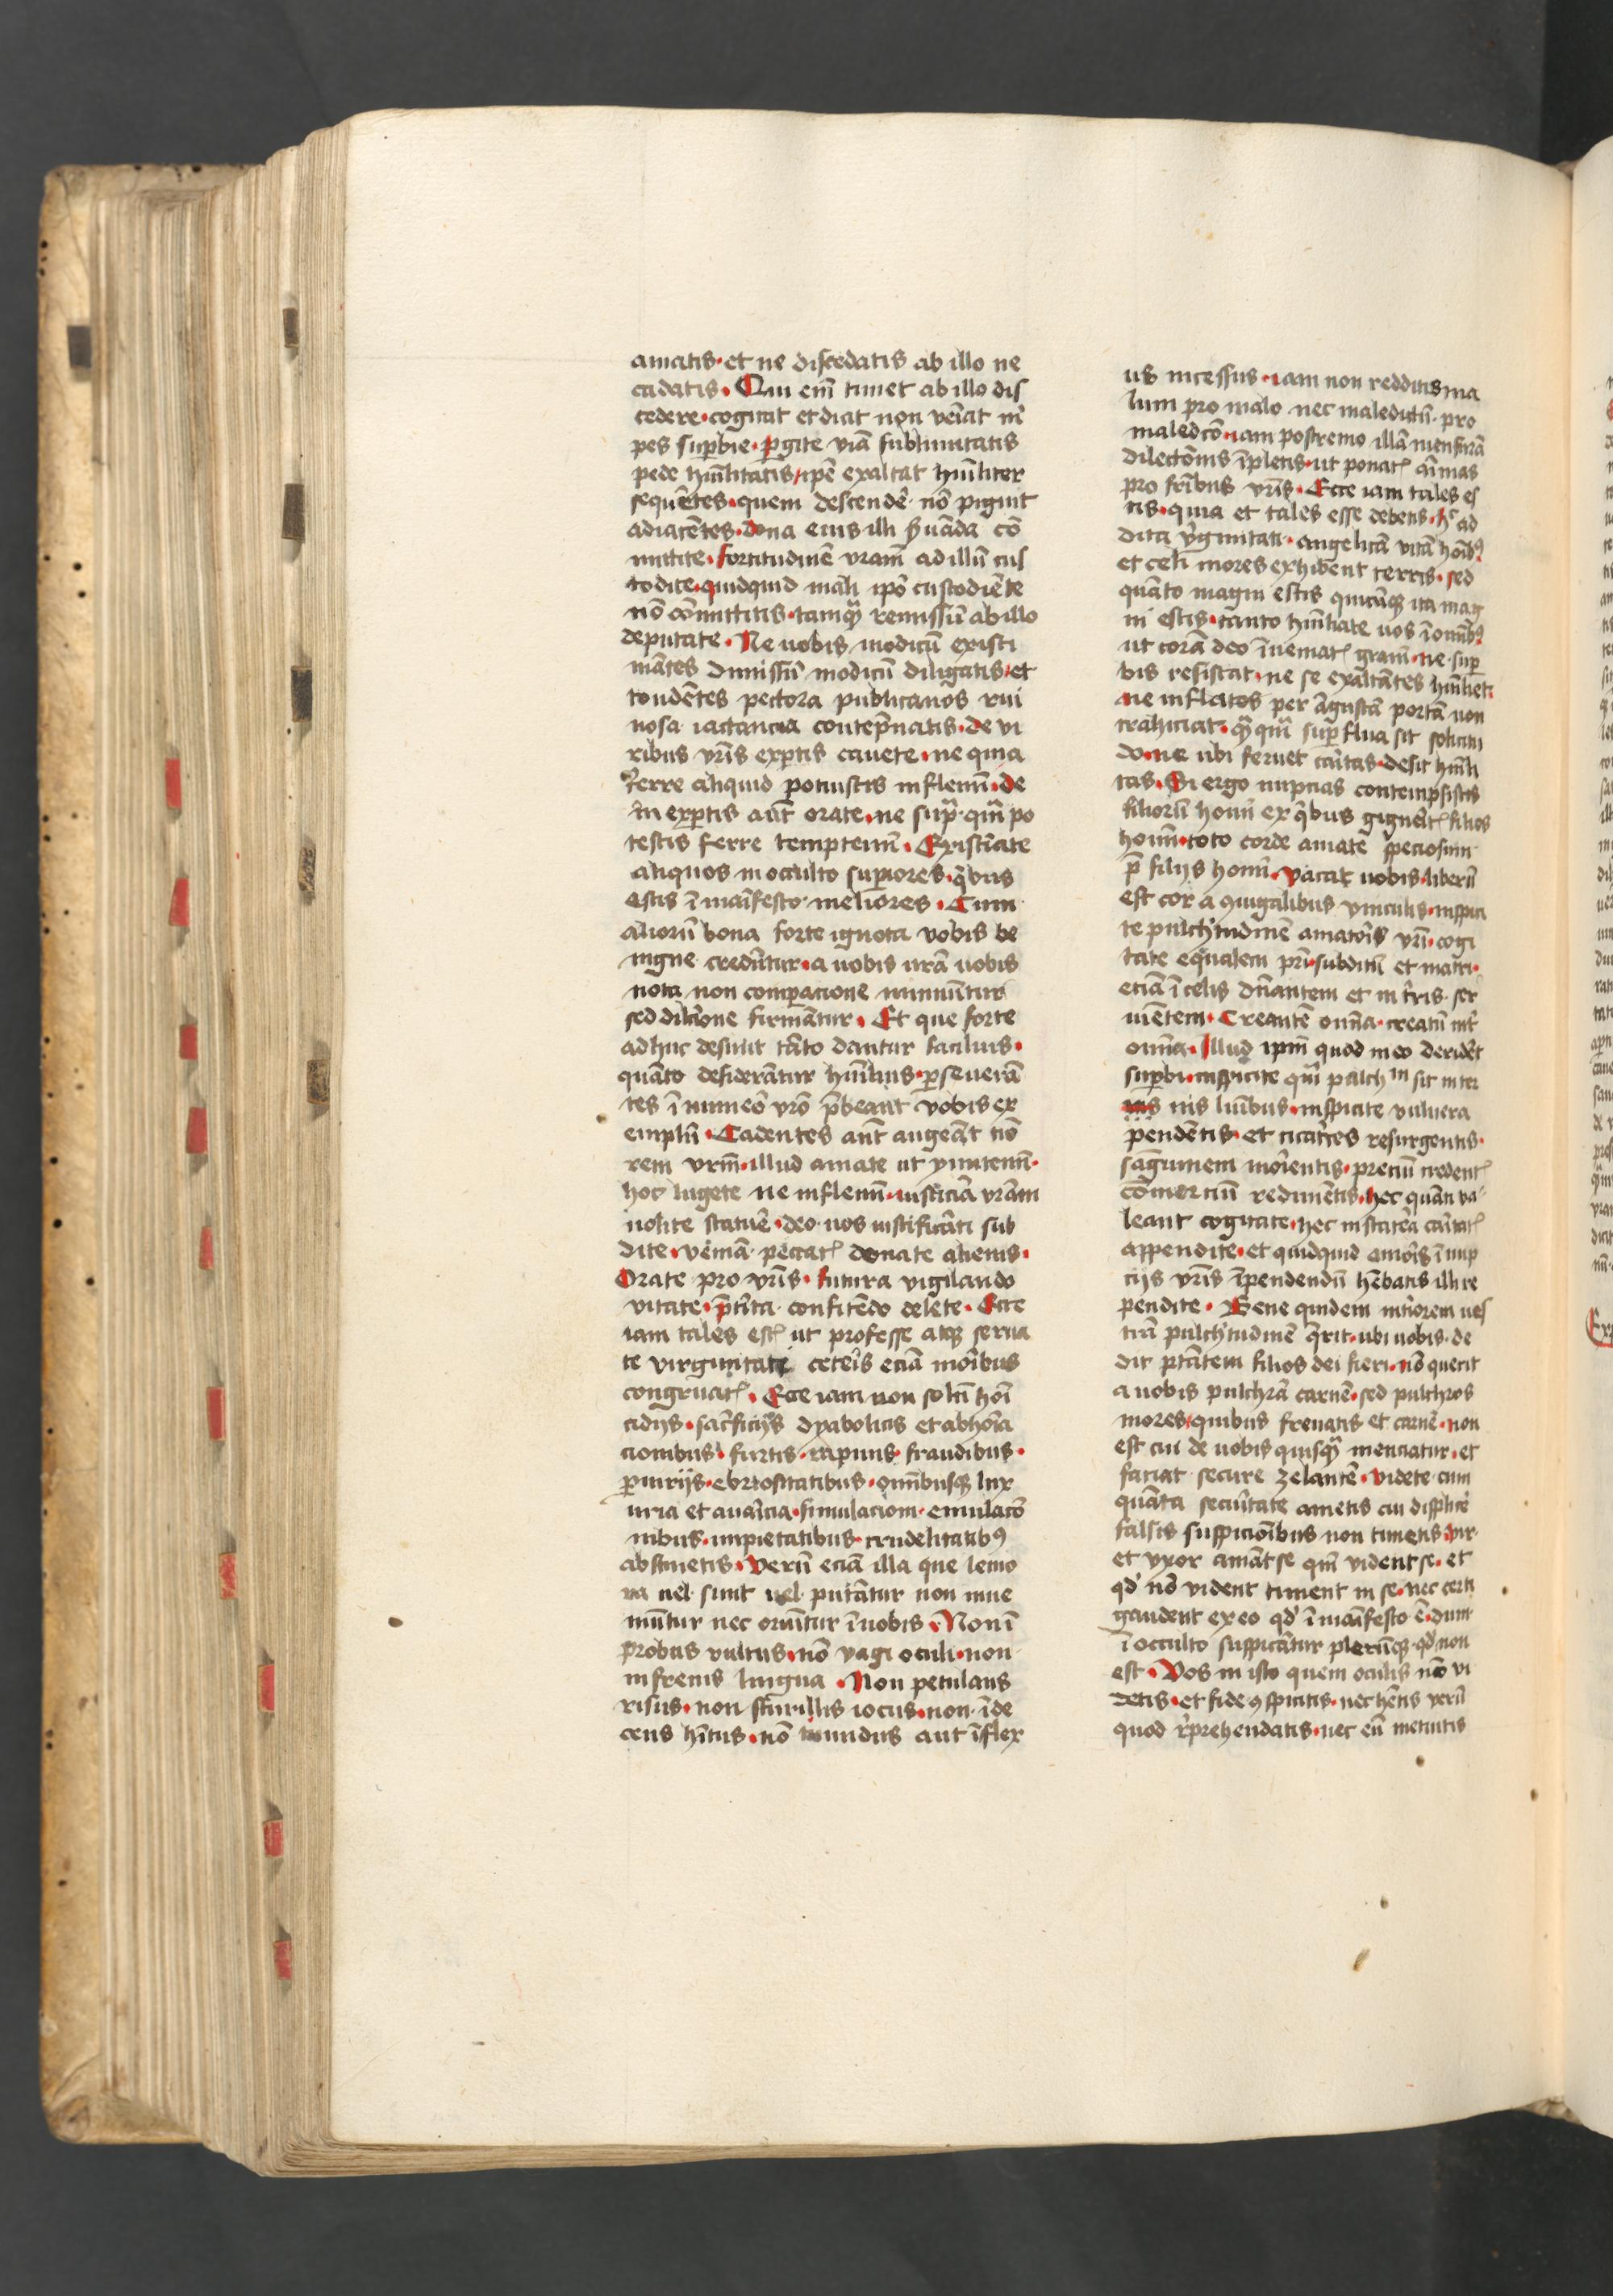 amatis · et ne discedatis ab illo ne
cadatis · Qui em̄ timet ab illo dis
cedere · cogitat et dicat non veīat m̄
pes suꝑbie · ꝑgite viā sublimitatis
pede hūilitatis / ip̄e exaltat hūiliter
sequētes · quem descendē · nō piguit
ad iacētes · dona eius illi s̄uāda cō
mittite · fortitudinē vrām ad illū cus
todite · quidquid mali ip̄o custodiēte
nō cōmittitis · tamqꝫ remissū ab illo
deputate · Ne uobis modicū existi
mātes dimissū modicū diligatis / et
tondētes pectora publicanos rui
nosa iactancia contēpnatis · de vi
ribus vrīs exꝑtis cavete · ne quia
ferre aliquid potuistis inflemī · de
in exꝑtis aūt orate · ne supͣ · qm̄ po
testis ferre temptemī · Existīate
aliquos in occulto suꝑiores · qͥbus
estis ī māifesto · meliores · Cum
aliorū bona forte ignota vobis be
nigne credūtur · a uobis ūrā uobis
nota non comꝑacione minuūtur
sed dilc̄ione firmātur · Et que forte
ad huc desunt tāto dantur facilius ·
quāto desiderātur hūilius · ꝑseuerā
tes ī numeō vrō p̄beant vobis ex
emplū · Cadentes aūt augeāt tīo
rem vrm̄ · illud amate ut ymitemī ·
hoc lugete ne inflemī · iusticiā vrām
nolite statuē · deo · uos iustificāti sub
dite · vēiam · peccatꝭ donate alienis ·
Orate pro vrīs · futura vigilando
vitate · p̄tīta · confitēdo delete · Ecce
iam tales estꝭ ut professe atqꝫ serua
te virginitate ceteīs eciā moībus
congruatꝭ · Ecce iam non solū hōi
cidijs · sac̄ficijs dyabolicis et abhoīa
cionibus · furtis · rapinis · fraudibus ·
ꝑiurijs · ebriositatibus · om̄ibusqꝫ lux
uria et auaīcia · simulacioni · emulacō
nibus · impietatibus · crudelitatibꝰ
abstinetis · Verū eciā illa que leuio
ra uel sunt uel putātur non inue
niūtur nec oriūtur ī uobis · Non ī
probus vultus · nō vagi oculi · non
infrenis lingua · Non petulans
risus · non scurillis iocus · non · īde
cens hītus · nō tumidus aut īflex
us incessus · iam non redditis ma
lum pro malo nec maledictū · pro
maledc̄o · iam postremo illā mensurā
dilectōnis īpletis · ut ponatꝭ aīmas
pro frībus vrīs · Ecce iam tales es
tis · quia et tales esse debetis · hͨ ad
dita v̄ginitati · angelicā vitā hoībꝰ
et celi mores exhibent terris · sed
quāto magni estis quicūqꝫ ita mag
ni estis · tanto hūiliate uos ī om̄ibꝰ
ut corā deo īueniatꝭ graīm · ne suꝑ
bis resistat · ne se exaltātes hūiliet ·
ne inflatos per āgustā portā non
trahiciat · qͣqm̄ suꝑflua sit solicitu
do · ne ubi feruet cāitas · desit hūili
tas · Si ergo nupcias contempsistis
filiorū hoim̄ ex qͥbus gignēetꝭ filios
hoim̄ · toto corde amate speciosum
p̄ filijs hoim̄ · Vacat uobis · liberū
est cor a ꝯiugalibus vinculis · inspici
te pulchͥtudinē amatoīs vrī · cogi
tate eqͣlem prī · subditū et matri ·
eciā ī celis dn̄antem et in t̄ris · ser
uiētem · Creantē omīa · creatū int̄
omīa · Illud ipm̄ quod in eo deridēt
suꝑbi · inspicite qm̄ pulchm̄ sit inter
nis luībus · inspicite vulnera
pendētis · et cicatīces resurgentis ·
sāguinem moīentis · preciū credentꝭ
cōmerciū redimētis · hec quāti va
leant cogitate · hec in statēa cāitatꝭ
appendite · et quidquid amoīs ī nup
tijs vrīs īpendendū hēbatis illi re
pendite · Bene quidem intīorem ues
trā pulchͥtudinē qͥerit · ubi uobis · de
dit ptātem filios dei fieri · nō querit
a uobis pulchrā carnē · sed pulchros
mores / quibus frenatis et carnē · non
est cui de uobis quisqͣ menciatur · et
faciat secure zelantē · videte · cum
quāta secūitate ametis cui displicē
falsis suspicioībus non timetis · vir ·
et vxor amāt se qm̄ vident se · et
qđ nō vident timent in se · nec certi
gaudent ex eo qđ ī māifesto ē · dum
ī occulto suspicātur plerūqꝫ · qđ non
est · Vos in isto quem oculis nō vi
detis · et fide ꝯspicitis · nec hētis verū
quod r̄prehendatis · nec eū metuitis